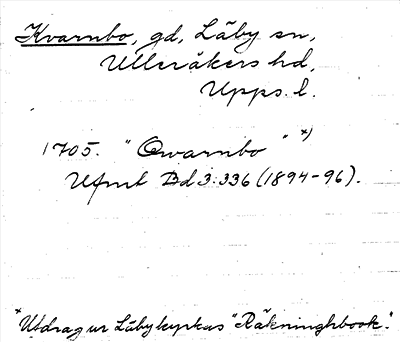 Kvarnbo, gd, Läby sn,
Ulleråkers hd,
Upps. l.
1705. "Qwarnbo" x)
Ufmt Bd 3:336 (1894-96).
x Utdrag ur Läby kyrkas "Räkninghbook".